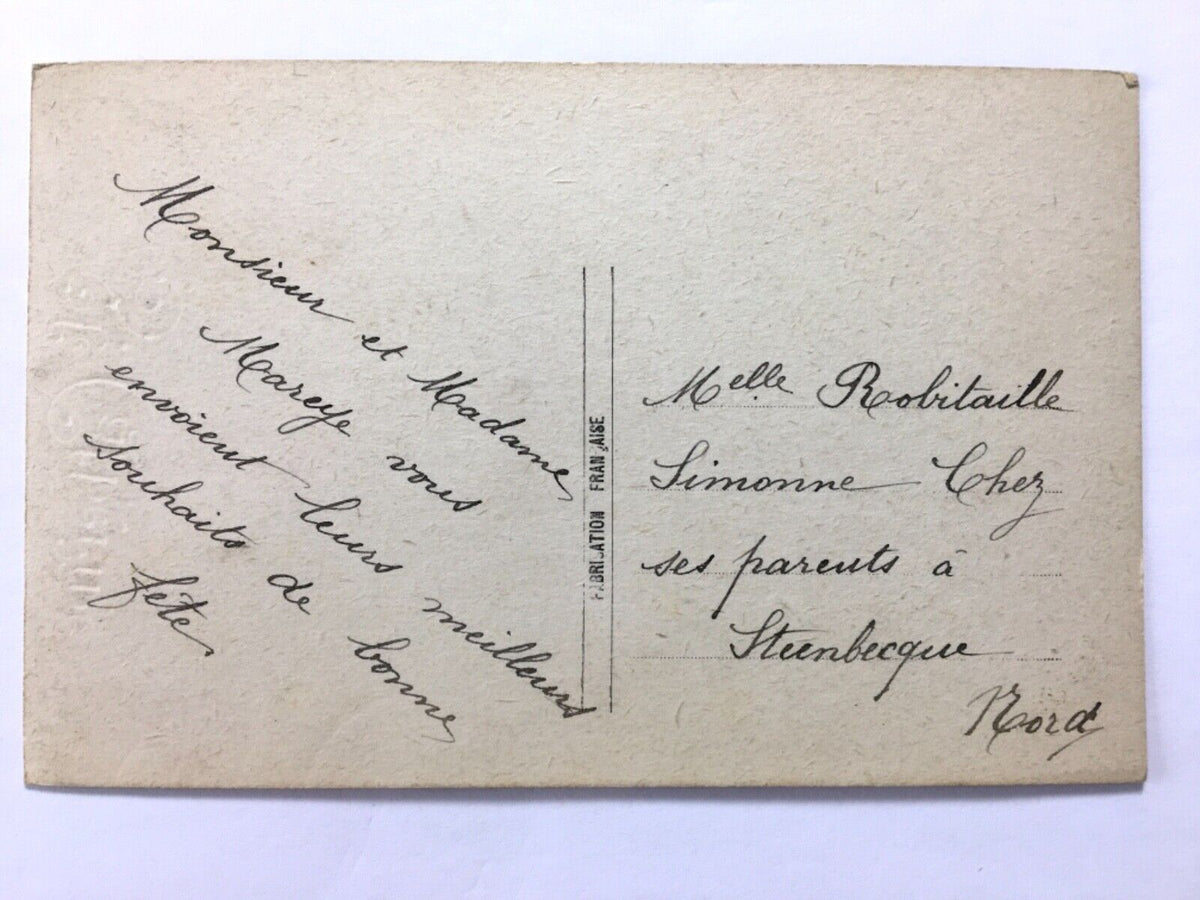 Monsieur et Madame
Mareyse vous
envoient leurs meilleurs
souhaits de bonne
fête
FABRICATION FRANÇAISE
Melle Robitaille
Simonne Chez
ses parents à
Steenbecque
Nord